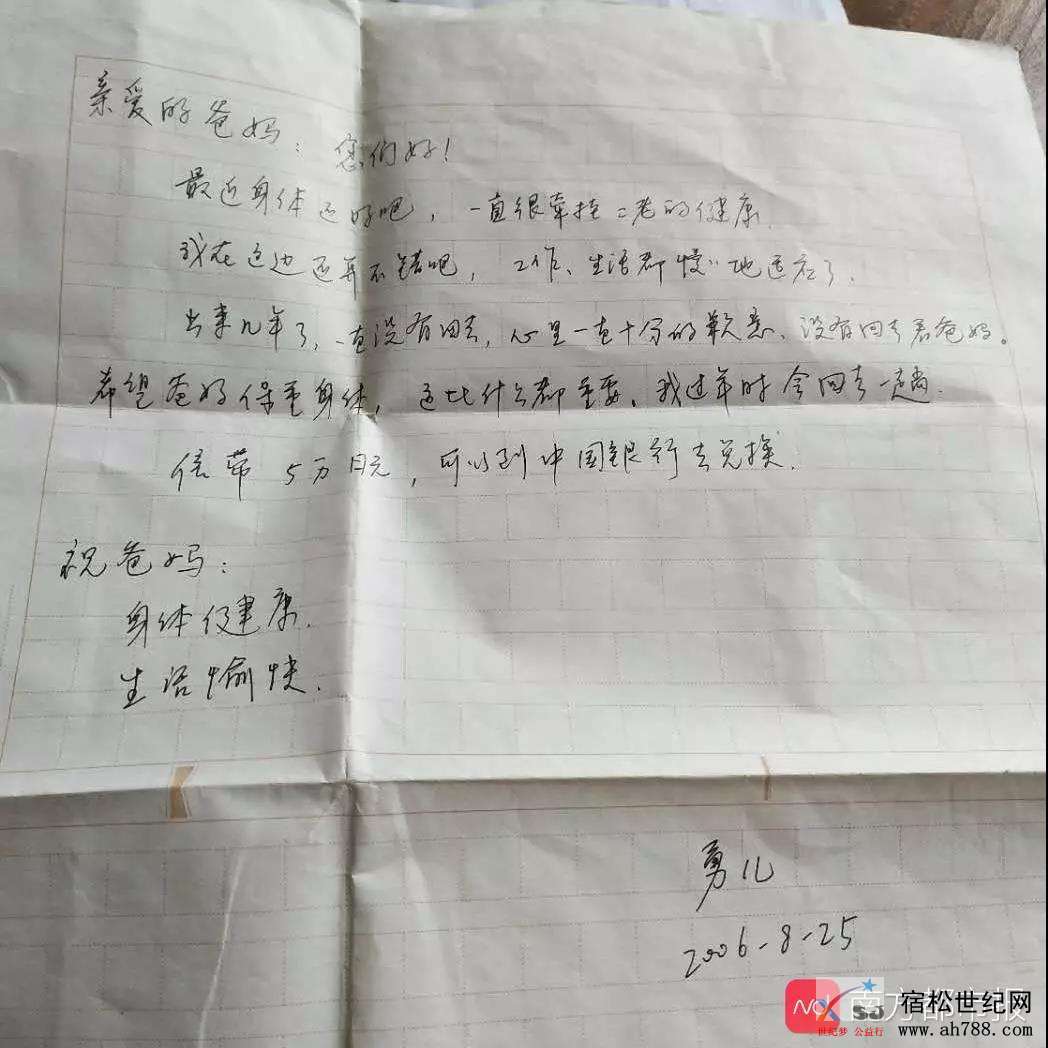 亲爱的爸妈：您们好！
最近身体还好吧，一直很牵挂二老的健康.
我在这边还算不错吧，工作、生活都慢〃地适应了.
出来几年了，一直没有回去，心里一直十分的歉意、没有回去看爸妈。
希望爸妈保重身体，这比什么都重要。我过年时会回去一趟.
信带5万日元，可以到中国银行去兑换.
祝爸妈：
身体健康.
生活愉快.
勇儿
2006-8-25
南方都市报
SJ
宿松世纪网
世纪梦 公益行
www.ah788.com